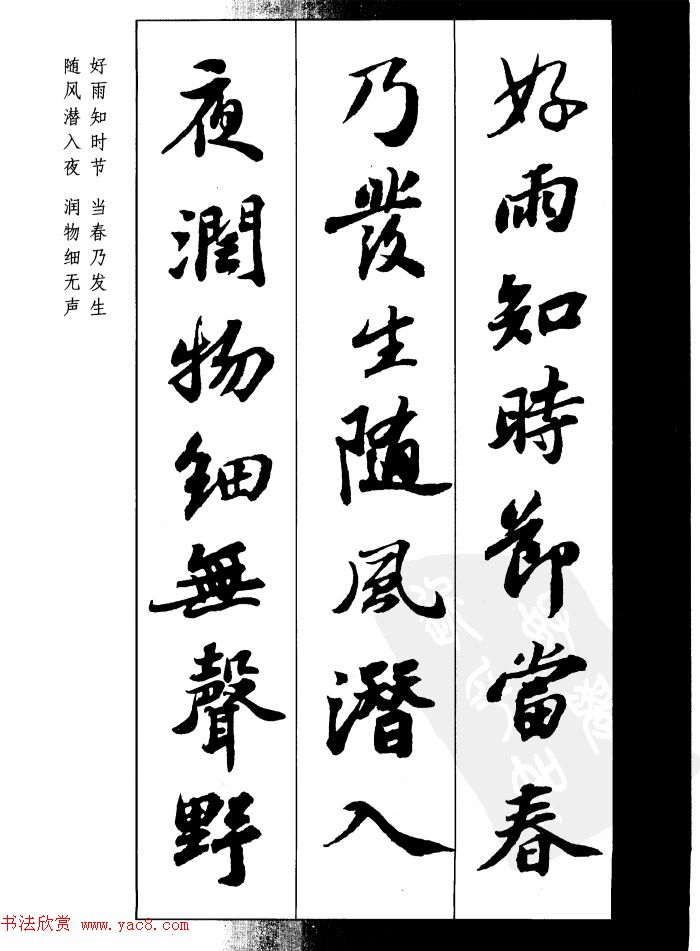 好雨知時節當春
乃發生随風潛入
夜潤物細無聲野
好雨知时节 当春乃发生
随风潜入夜 润物细无声
书法欣赏 www.yac8.com